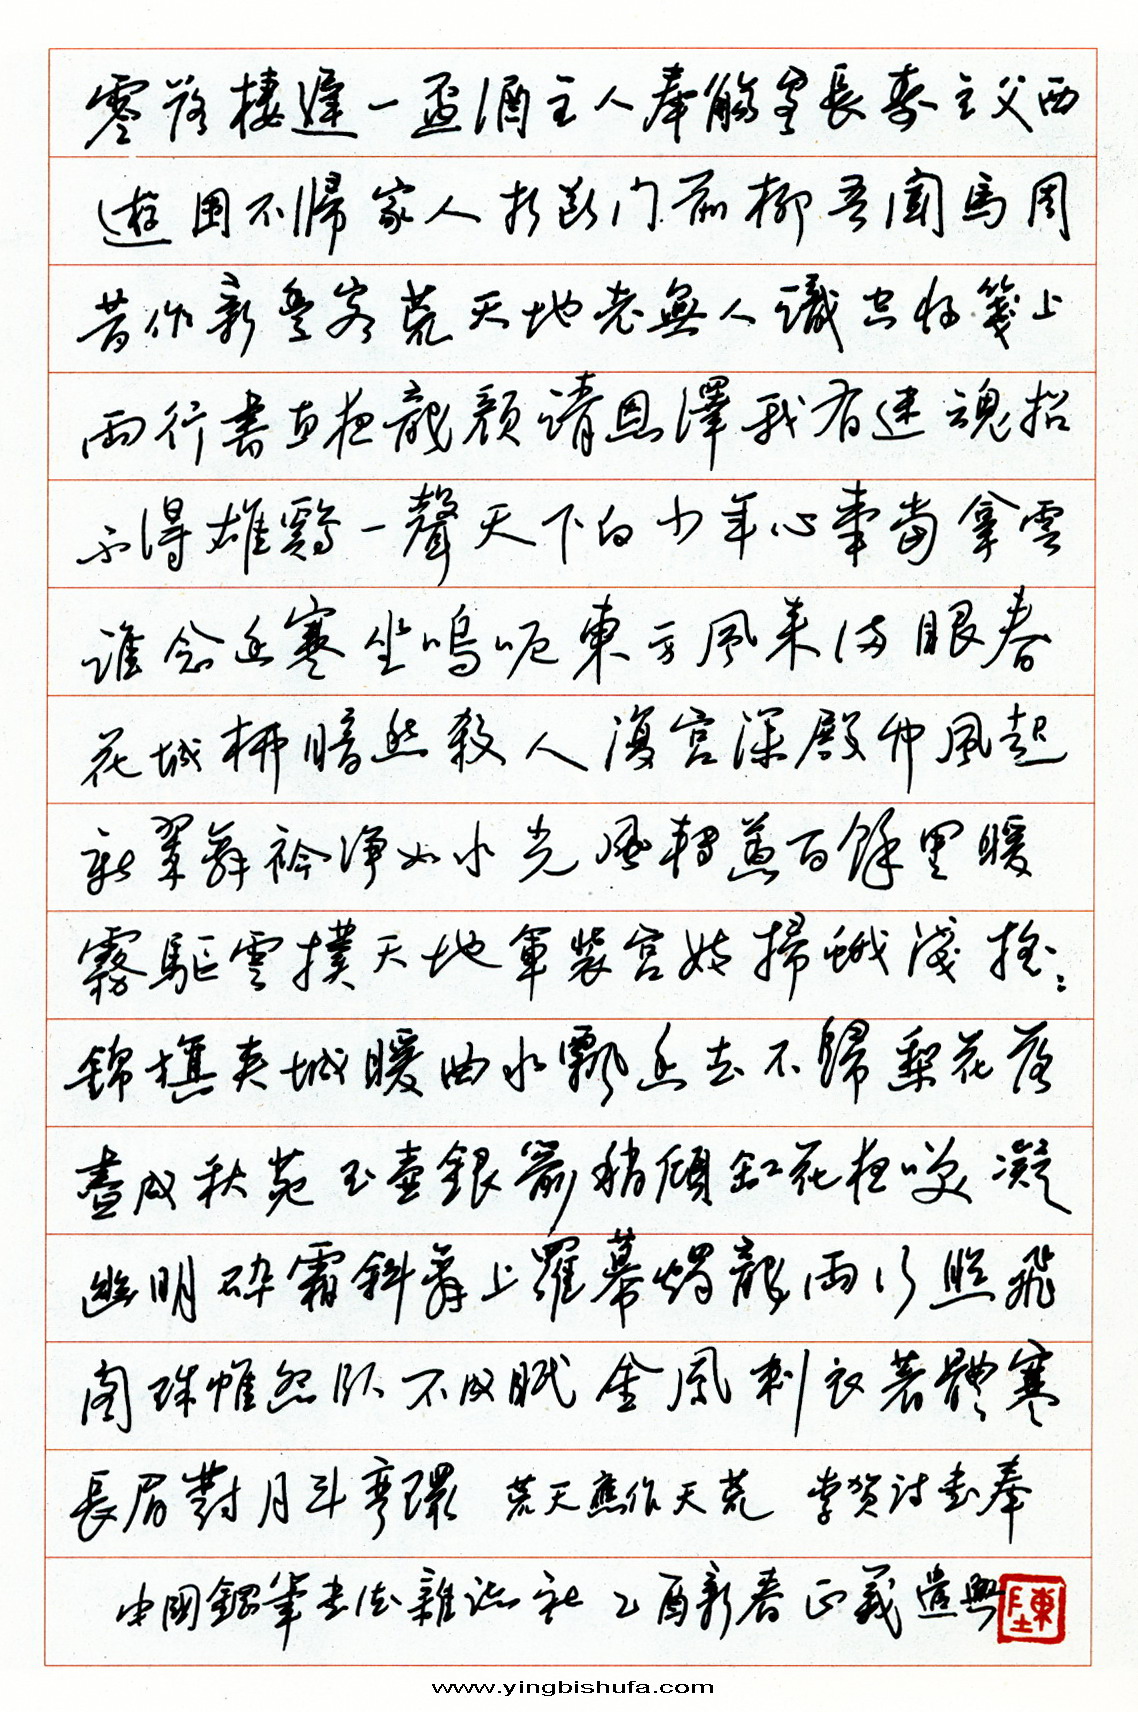 零落棲遲一盃酒主人奉觴客長壽主父西
遊困不歸家人折斷门前柳吾聞馬周
昔作新豐客荒天地老無人識空將箋上
兩行書直犯龍顏請恩澤我有迷魂招
不得雄鷄一聲天下白少年心事當拿雲
誰念幽寒坐嗚呃東方風来满眼春
花城柳暗愁殺人復宫深殿竹風起
新翠舞衿净如水光風轉蕙百餘里暖
霧驅雲撲天地軍裝宫妓掃蛾淺搖:
錦旗夾城暖曲水飄香去不歸梨花落
盡成秋苑玉壺銀箭稍傾缸花夜笑凝
幽明碎霜斜舞上羅幕燭龍兩行照飛
閣珠帷怨卧不成眠金鳳刺衣著體寒
長眉對月斗彎環 荒天應作天荒 李賀詩書奉
中國鋼筆书法雜誌社 乙酉新春正義遣興 陳
www.yingbishufa.com